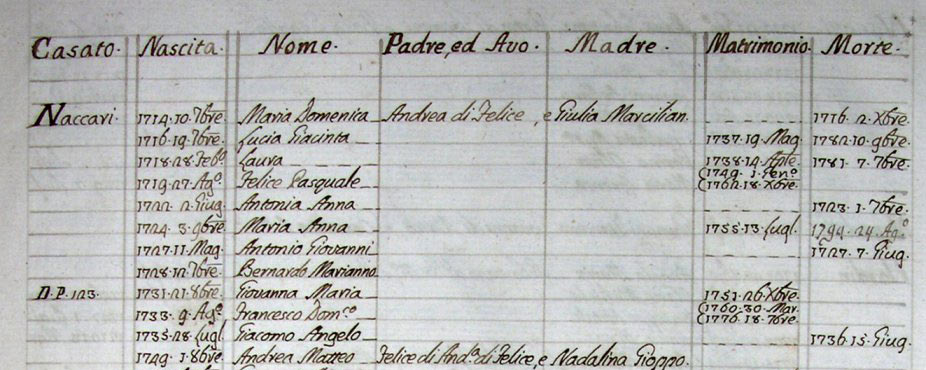 Casato. Nascita. Nome. Padre, ed Avo. Madre. Matrimonio Morte.
Naccari. 1714. 10. 7bre. Maria Domenica Andrea di Felice, e Giulia Marcilian. 1716. 2. Xbre.
1716. 19. 7bre. Lucia Giacinta 1737. 19. Mag. 1782. 10. 9bre.
1718. 28. Febº. Laura 1738. 14. Aple. 1781. 7. 7bre.
1719. 27. Agº. Felice Pasquale (1749. 1. Genº
(1762. 18. Xbre.
1722. 2. Giug. Antonia Anna 1723. 1. 7bre.
1724. 3. 9bre. Maria Anna 1755. 13. Lugl. 1794. 24. Agº
1727. 11. Mag. Antonio Giovanni 1727. 7. Giug.
1728. 12. 7bre. Bernardo Marianno
D. P. 123. 1731. 21. 8bre. Giovanna Maria 1751. 26. Xbre.
1733. 9. Agº. Francesco Domco. (1760. 30. Mar.
(1776. 18. 7bre.
1735. 28. Lugl. Giacomo Angelo 1736. 15. Giug.
1749. 1. 8bre. Andrea Matteo Felice di Andª. di Felice, e Nadalina Gioppo.